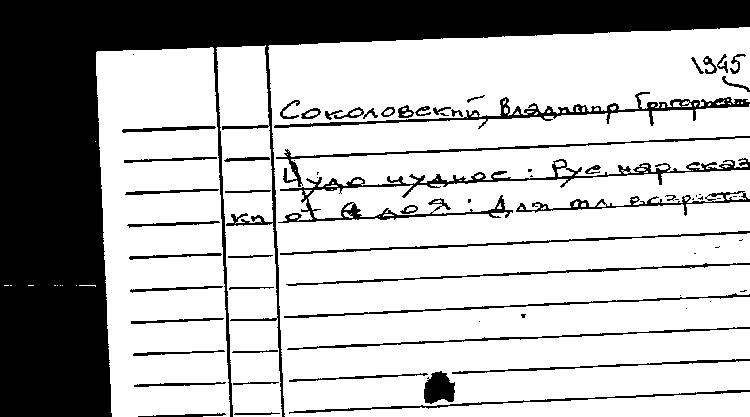 1945
Соколовский, Владимир Григорьевич
Чудо чудное : Рус. нар. сказ
кп от А до Я : Для мл. возраста